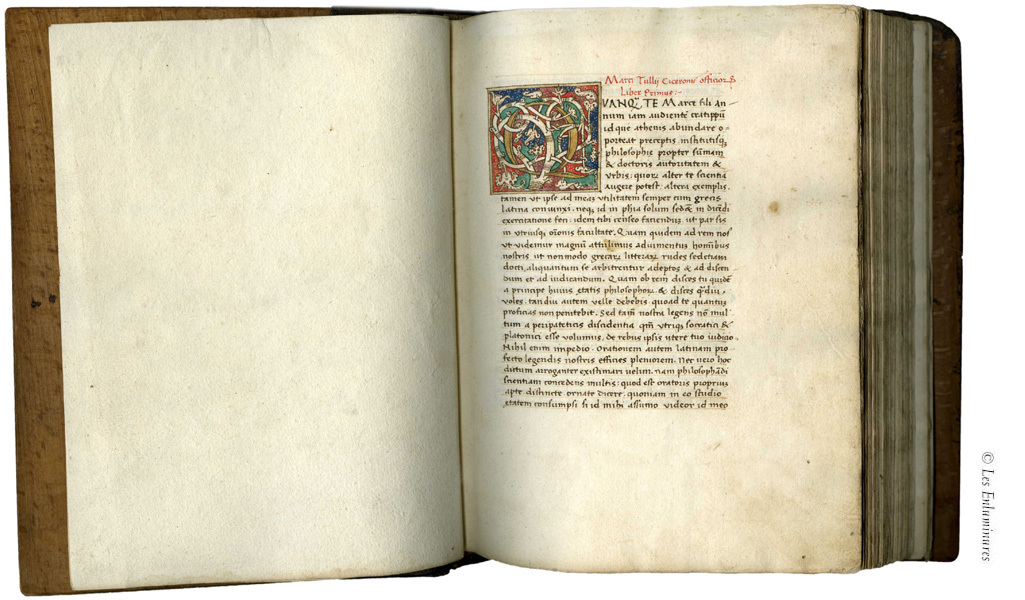 Marci Tullij Ciceronis officioꝝ
Liber Primus:-
QVANQ̃ TE Marce fili An-
num iam audientẽ cratippũ
id que athenis abundare o-
porteat preceptis institutisq;
philosophie propter sũmam
& doctoris autoritatem &
urbis: quoꝝ alter te scientia
augere potest. altera exemplis.
tamen ut ipse ad meaz utilitatem semper cum grecis
latina coniunxi. neq; id in phīa solum sed& in dicẽdi
exercitatione feci: idem tibi censeo faciendũ. ut par sis
in utriusq; orõnis facultate. Quam quidem ad rem nos
ut videmur magnũ attulimus adiumentuz hominibus
nostris ut nonmodo grecaꝝ litteraꝝ rudes sedetiam
docti, aliquantum se arbitrentur adeptos & ad dicen
dum et ad iudicandum. Quam ob rem disces tu quidẽ
a principe huius etatis philosophoꝝ. & disces q̃diu
voles. tan diu autem velle debebis quoad te quantuz
proficias non penitebit. Sed tamẽ nostra legens nõ mul
tum a peripateticis dissidentia qm̃ utriq; socratici &
platonici esse volumus, de rebus ipsis utere tuo iudicio.
Nihil enim impedio. Orationem autem latinam pro
fecto legendis nostris efficies pleniorem. Nec uero hoc
dictum arroganter existimari velim. nam philosophãdi
scientiam concedens multis: quod est oratoris propriuz
apte. distincte. ornate dicere. quoniam in eo studio
etatem consumpsi si id mihi assumo videor id meo
© Les Enluminures